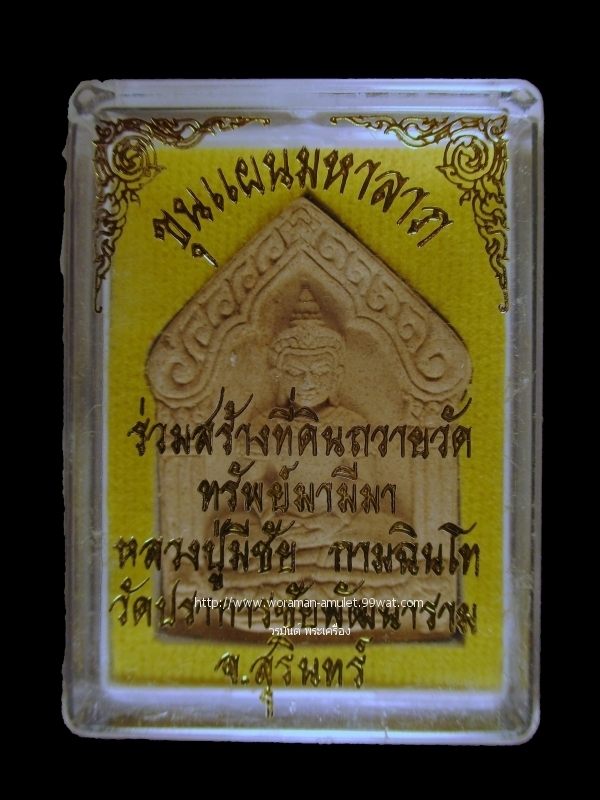 ขุนแผนมหาลาภ
ร่วมสร้างที่ดินถวายวัด
ทรัพย์มามีมา
หลวงปู่มีชัย กามฉินโท
วัดปราการชัยพัฒนาราม
http://www.woraman-amulet.99wat.com
วรมันต์ พระเครื่อง
จ.สุรินทร์